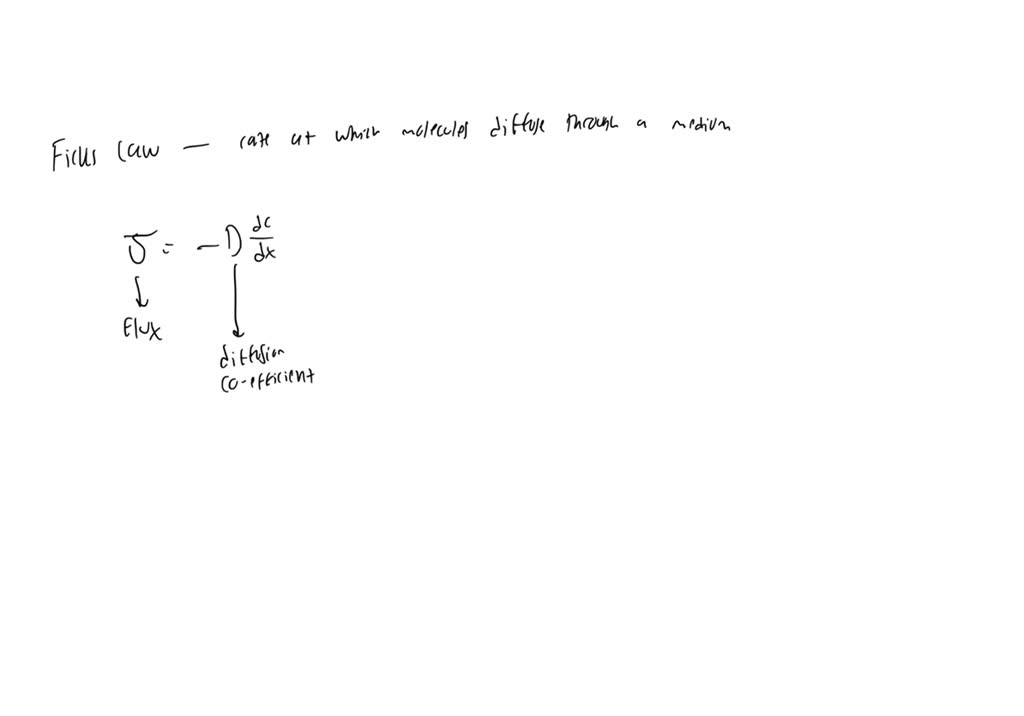 Ficks Law — rate at which molecules diffuse through a medium
J = -D dc/dx
↓ ↓
Flux
diffusion
co-efficient